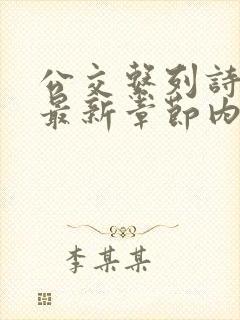 公交繫列詩
最新章節内
李某某